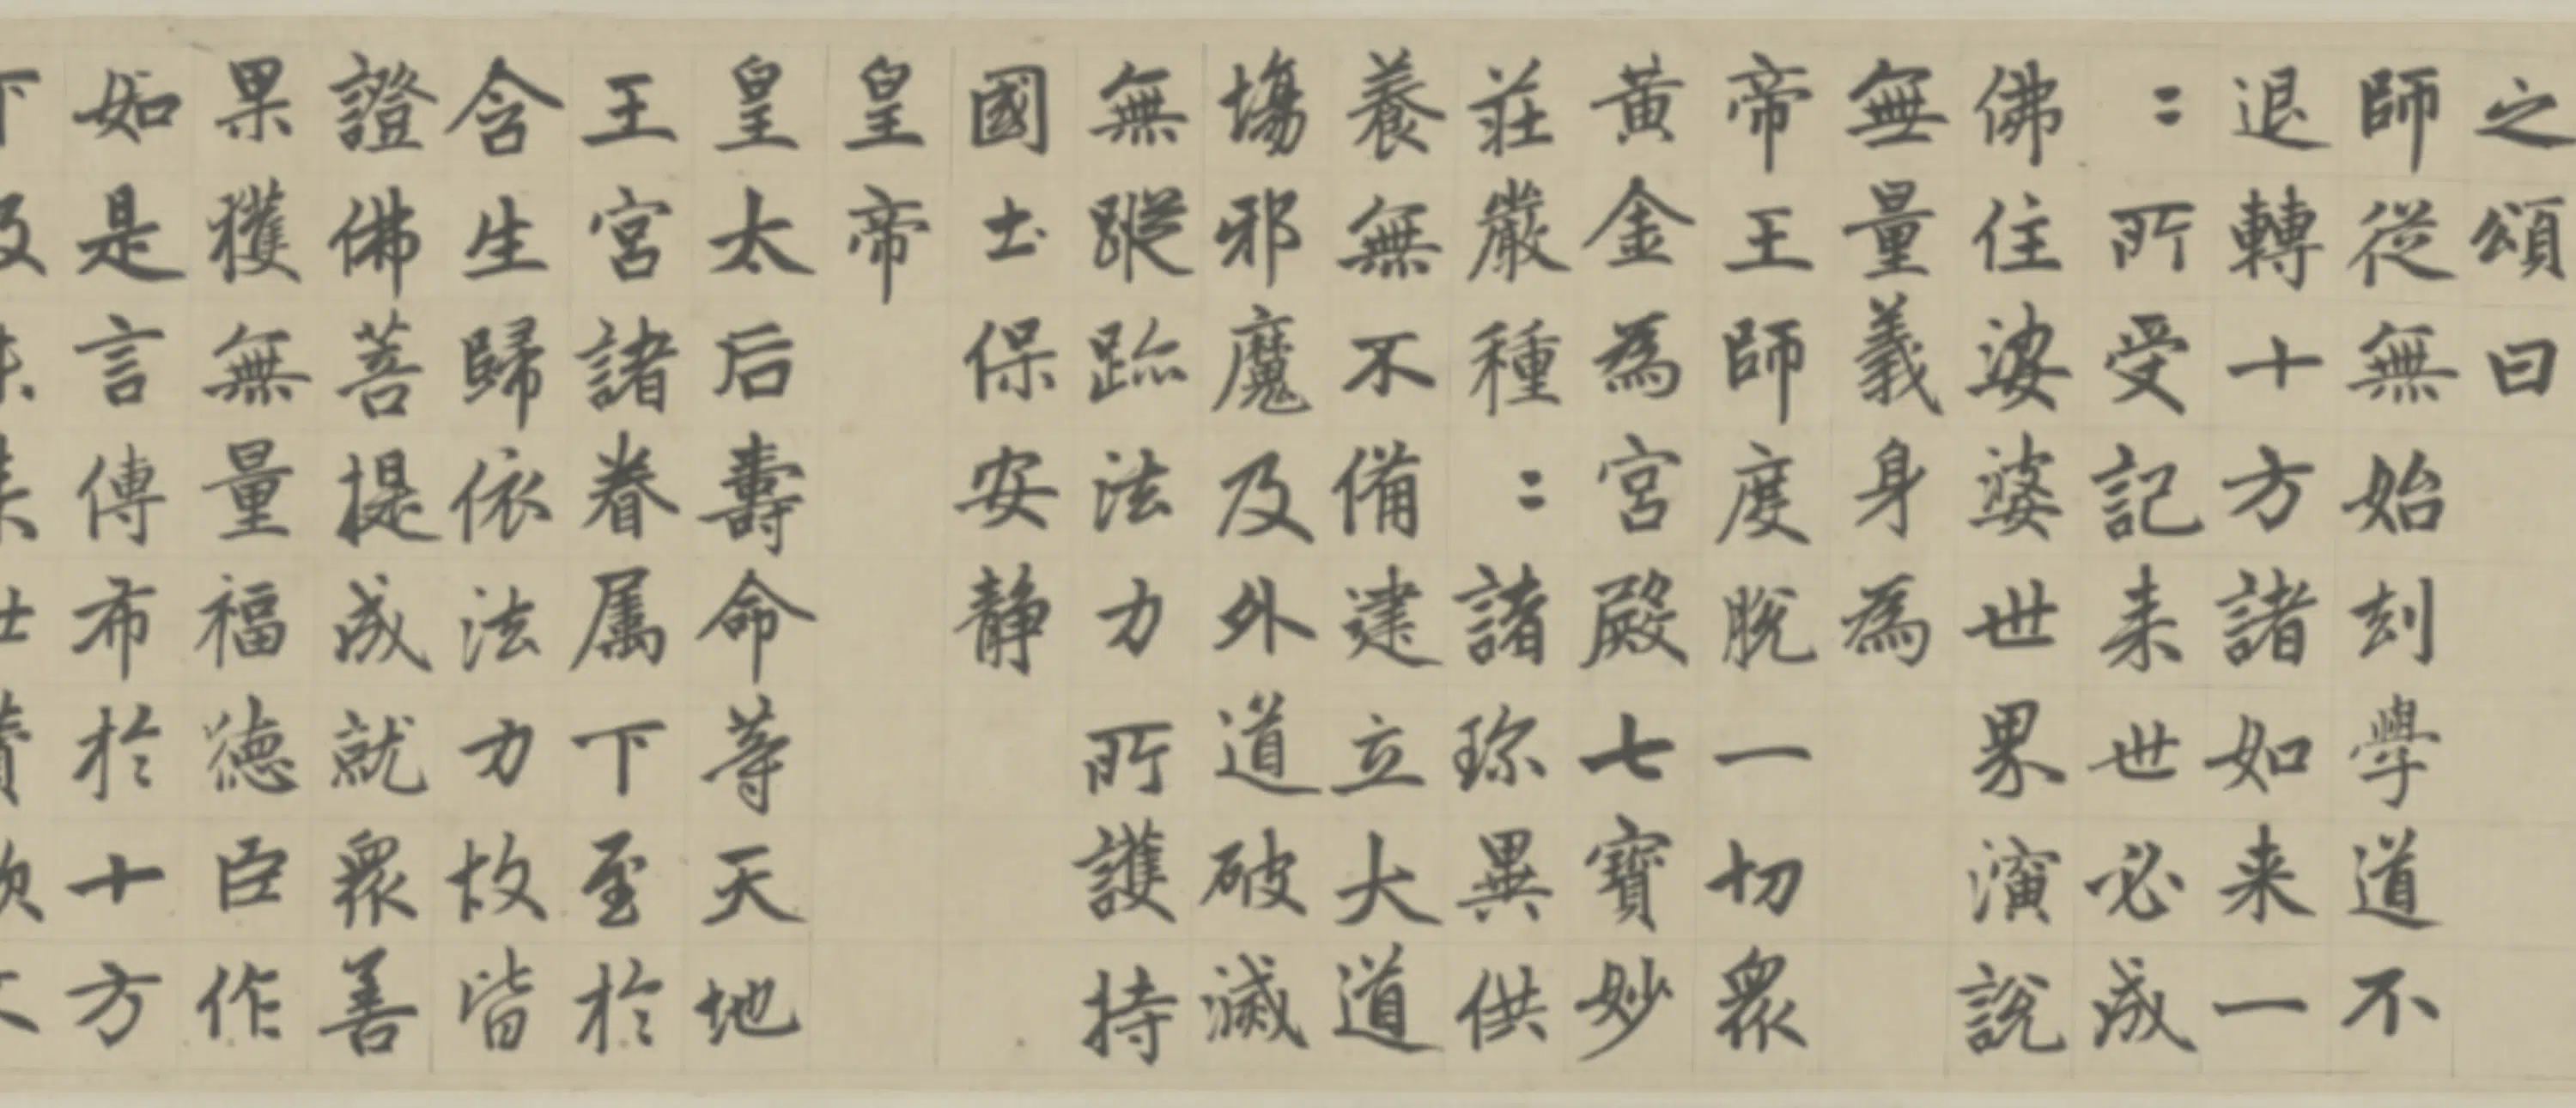 之頌曰
師從無始刧學道不
退轉十方諸如来一
〻所受記来世必成
佛住娑婆世界演說
無量義身為
帝王師度脫一切眾
黄金為宮殿七寶妙
莊嚴種〻諸珎異供
養無不備建立大道
場邪魔及外道破滅
無蹤跡法力所護持
國土保安静
皇帝
皇太后壽命等天地
王宮諸眷属下至於
含生歸依法力故皆
證佛菩提成就眾善
果獲無量福德臣作
如是言傳布於十方
下及